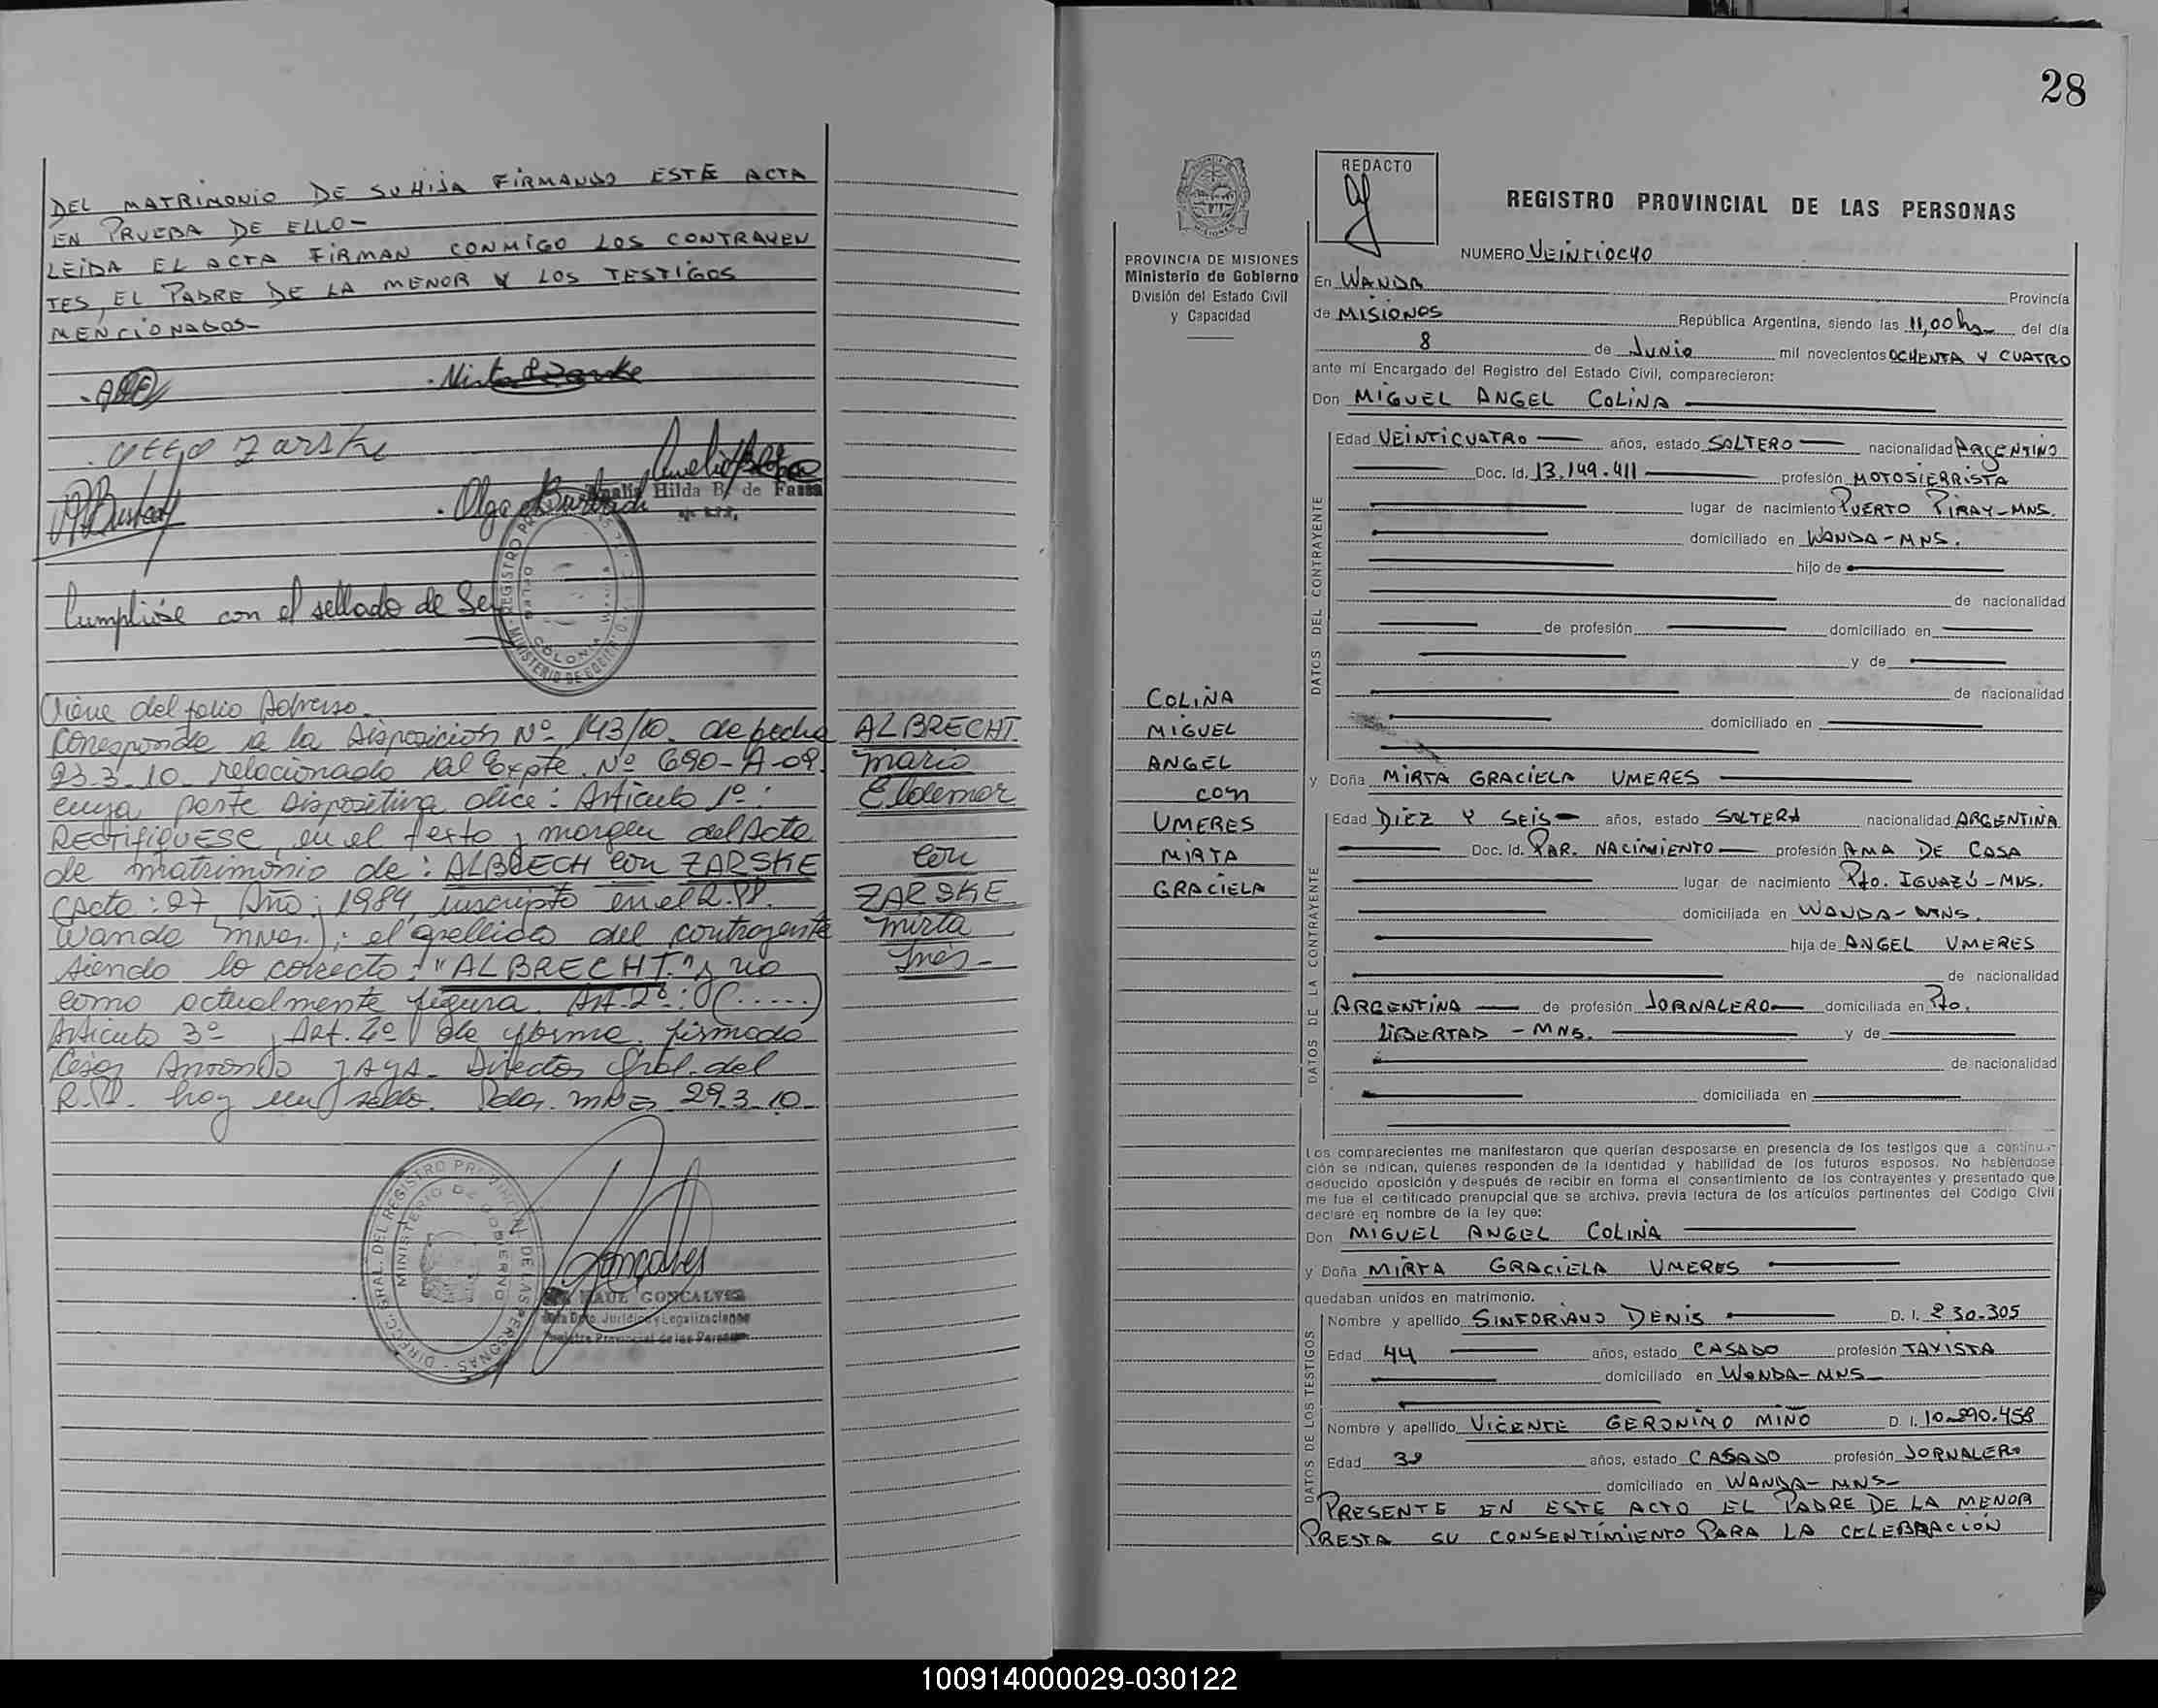 DEL MATRIMONIO DE SU HIJA FIRMANDO ESTE ACTA
EN PRUEBA DE ELLO-
LEIDA EL ACTA FIRMAN CONMIGO LOS CONTRAYEN
TES, EL PADRE DE LA MENOR Y LOS TESTIGOS
MENCIONADOS-
Otto Zarske
Olga
Hilda B. de Fassa
Cumplióse con el sellado de
COLONIA
Viene del folio Adverso.
Corresponde a la Disposición Nº 143/10. de fecha
23-3-10 relacionado al Expte. Nº 690-A-09.
cuya parte dispositiva dice: Artículo 1º:
RECTIFIQUESE, en el texto y margen del Acta
de matrimonio de: ALBRECH con ZARSKE
(Acta: 27, Año: 1984, inscripto en el R.PP.
Wanda mnes.); el apellido del contrayente
siendo lo correcto: "ALBRECHT" y no
como actualmente figura. Art. 2º: (.....)
Artículo 3º, Art. 4º de forma. firmado
Cesar Armando ZAYA- Director Gral. del
R.PP. hay un sello. Pdas. mnes 29-3-10-
ALBRECHT.
Mario
Eldemar
con
ZARSKE
Mirta
Inés-
DIRECC. GRAL. DEL REGISTRO PROVINCIAL DE LAS PERSONAS
MINISTERIO DE GOBIERNO
Goncalves
RAUL GONCALVES
Jefe Dpto. Jurídico y Legalizaciones
Registro Provincial de las Personas
28
PROVINCIA DE MISIONES
Ministerio de Gobierno
División del Estado Civil
y Capacidad
COLINA
MIGUEL
ANGEL
con
UMERES
MIRTA
GRACIELA
REDACTO
REGISTRO PROVINCIAL DE LAS PERSONAS
NUMERO VEINTIOCHO
En WANDA Provincia
de MISIONES República Argentina, siendo las 11,00 hs del día
8 de Junio mil novecientos OCHENTA Y CUATRO
ante mí Encargado del Registro del Estado Civil, comparecieron:
Don MIGUEL ANGEL COLINA
DATOS DEL CONTRAYENTE
Edad VEINTICUATRO años, estado SOLTERO nacionalidad ARGENTINO
Doc. Id. 13.149.411 profesión MOTOSIERRISTA
lugar de nacimiento PUERTO PIRAY-MNS.
domiciliado en WANDA-MNS.
hijo de
de nacionalidad
de profesión domiciliado en
y de
de nacionalidad
domiciliado en
y Doña MIRTA GRACIELA UMERES
DATOS DE LA CONTRAYENTE
Edad DIEZ Y SEIS años, estado SOLTERA nacionalidad ARGENTINA
Doc. Id. PAR. NACIMIENTO profesión AMA DE CASA
lugar de nacimiento Pto. IGUAZÚ-MNS.
domiciliada en WANDA-MNS.
hija de ANGEL UMERES
de nacionalidad
ARGENTINA de profesión JORNALERO domiciliada en Pto.
LIBERTAD - MNS. y de
de nacionalidad
domiciliada en
Los comparecientes me manifestaron que querían desposarse en presencia de los testigos que a continua-
ción se indican, quienes responden de la identidad y habilidad de los futuros esposos. No habiéndose
deducido oposición y después de recibir en forma el consentimiento de los contrayentes y presentado que
me fue el certificado prenupcial que se archiva, previa lectura de los artículos pertinentes del Código Civil
declaré en nombre de la ley que:
Don MIGUEL ANGEL COLINA
y Doña MIRTA GRACIELA UMERES
quedaban unidos en matrimonio.
DATOS DE LOS TESTIGOS
Nombre y apellido SINFORIANO DENIS D. I. 230.305
Edad 44 años, estado CASADO profesión TAXISTA
domiciliado en WANDA-MNS
Nombre y apellido VICENTE GERONIMO MIÑO D. I. 10.890.458
Edad 39 años, estado CASADO profesión JORNALERO
domiciliado en WANDA-MNS-
PRESENTE EN ESTE ACTO EL PADRE DE LA MENOR
PRESTA SU CONSENTIMIENTO PARA LA CELEBRACION
100914000029-030122